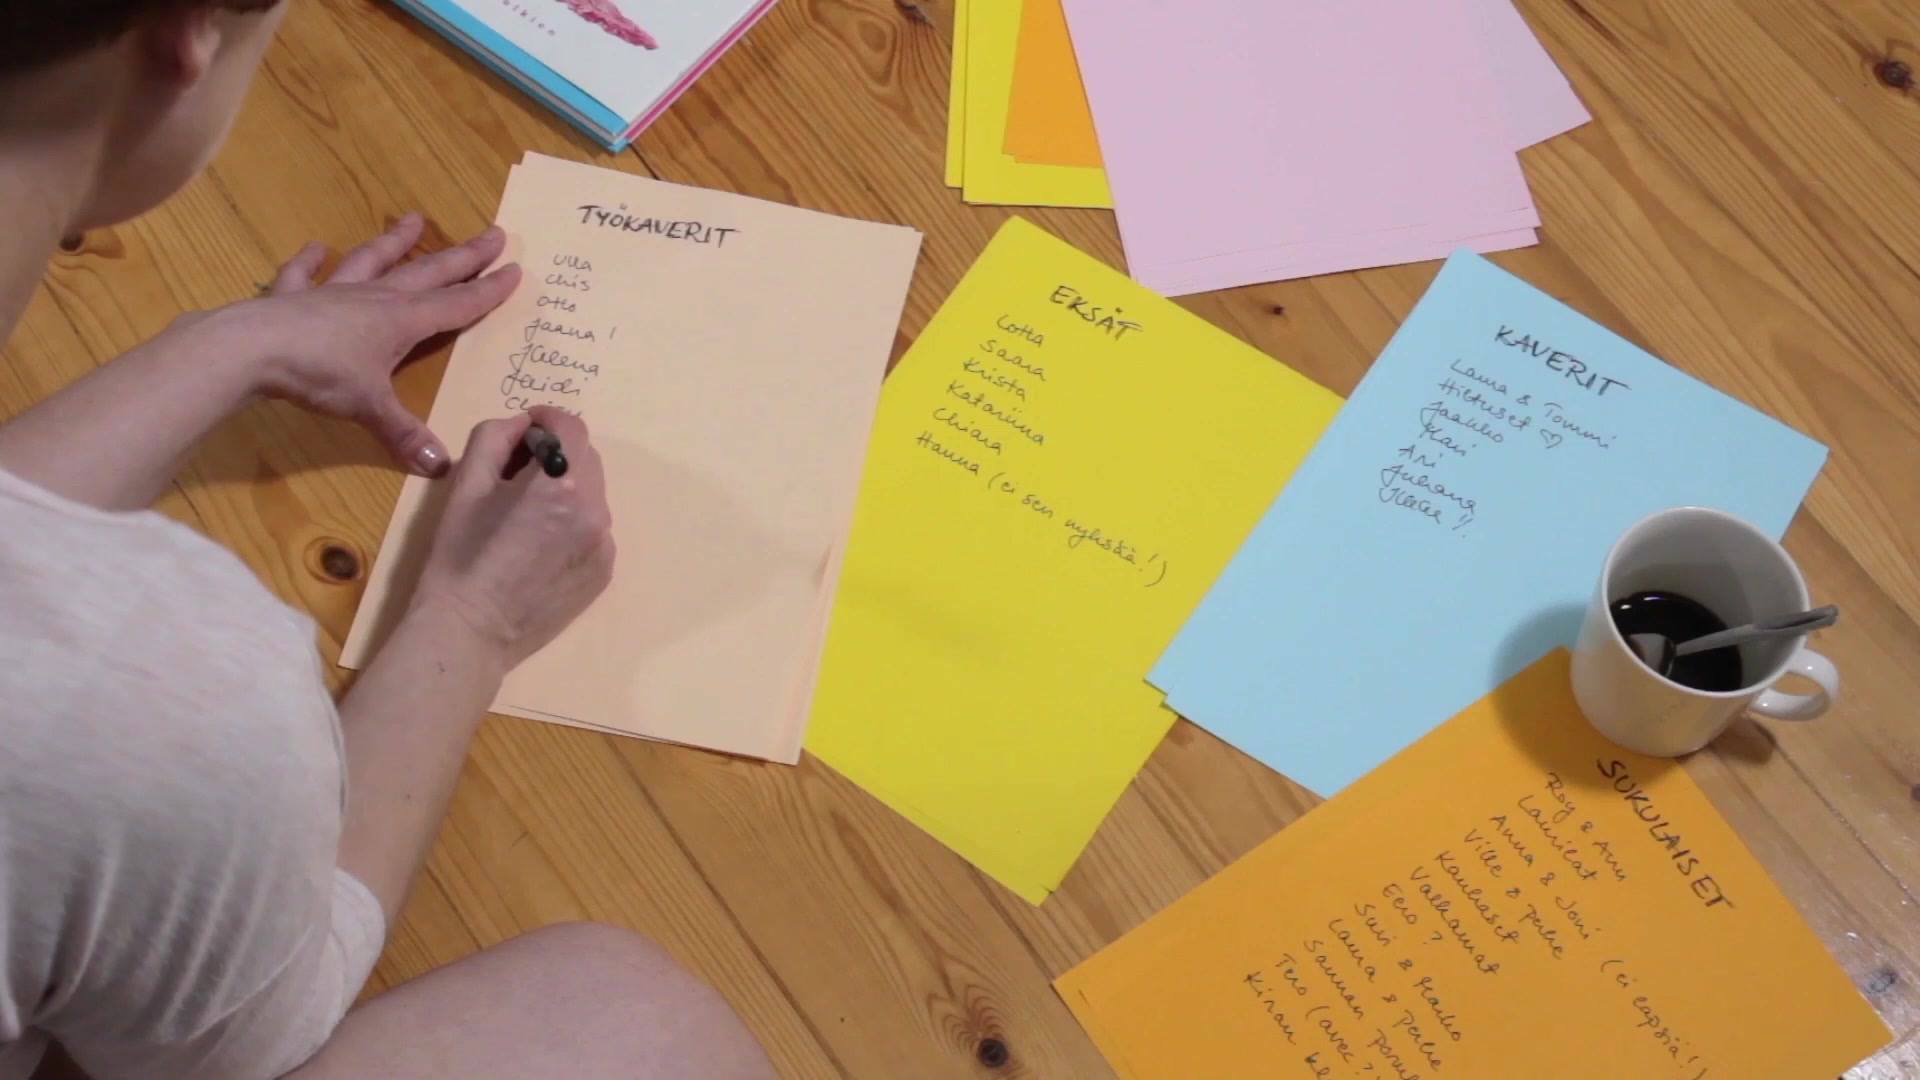 TYÖKAVERIT
Ulla
Chis
Otto
Jaana!
Helena
Heidi
EKSÄT
Lotta
Saara
Krista
Katariina
Chiara
Hanna (ei sen nyksää!)
KAVERIT
Laura & Tommi
Hiltuset ♡
Jaakko
Kari
Ari
Juhana
!!
SUKULAISET
Roy & Anu
Laurilat
Anna & Joni (ei lapsia!)
Ville & perhe
Kauhaset
Valkamat
Eero?
Suvi & Marko
Laura & perhe
Sannan
Tero (avec?
Kirsan